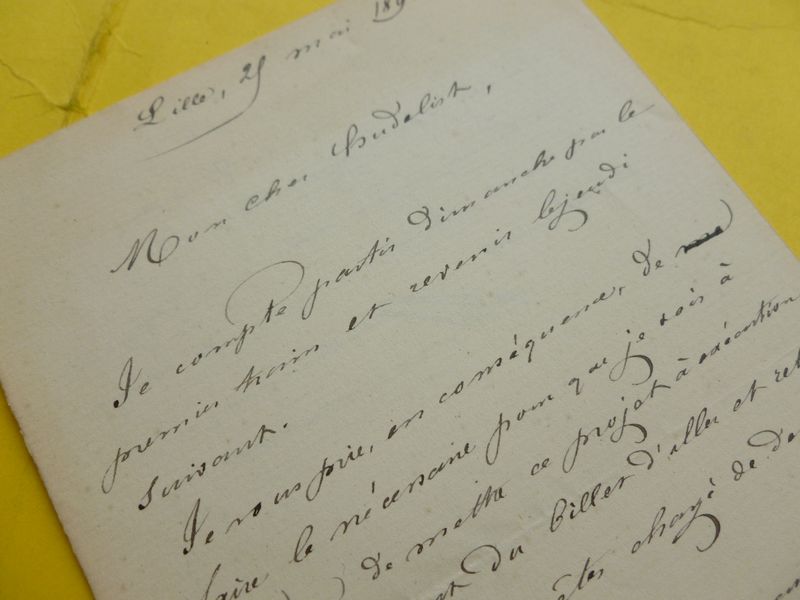 Lille, 25 mai 189
Mon cher Hudelist,
Je compte partir dimanche par le
premier train et revenir le jeudi
suivant.
Je vous prie, en conséquence, de me
faire le nécessaire pour que je sois à
de mettre ce projet à exécution
du billet d'aller et ret
êtes chargé de de